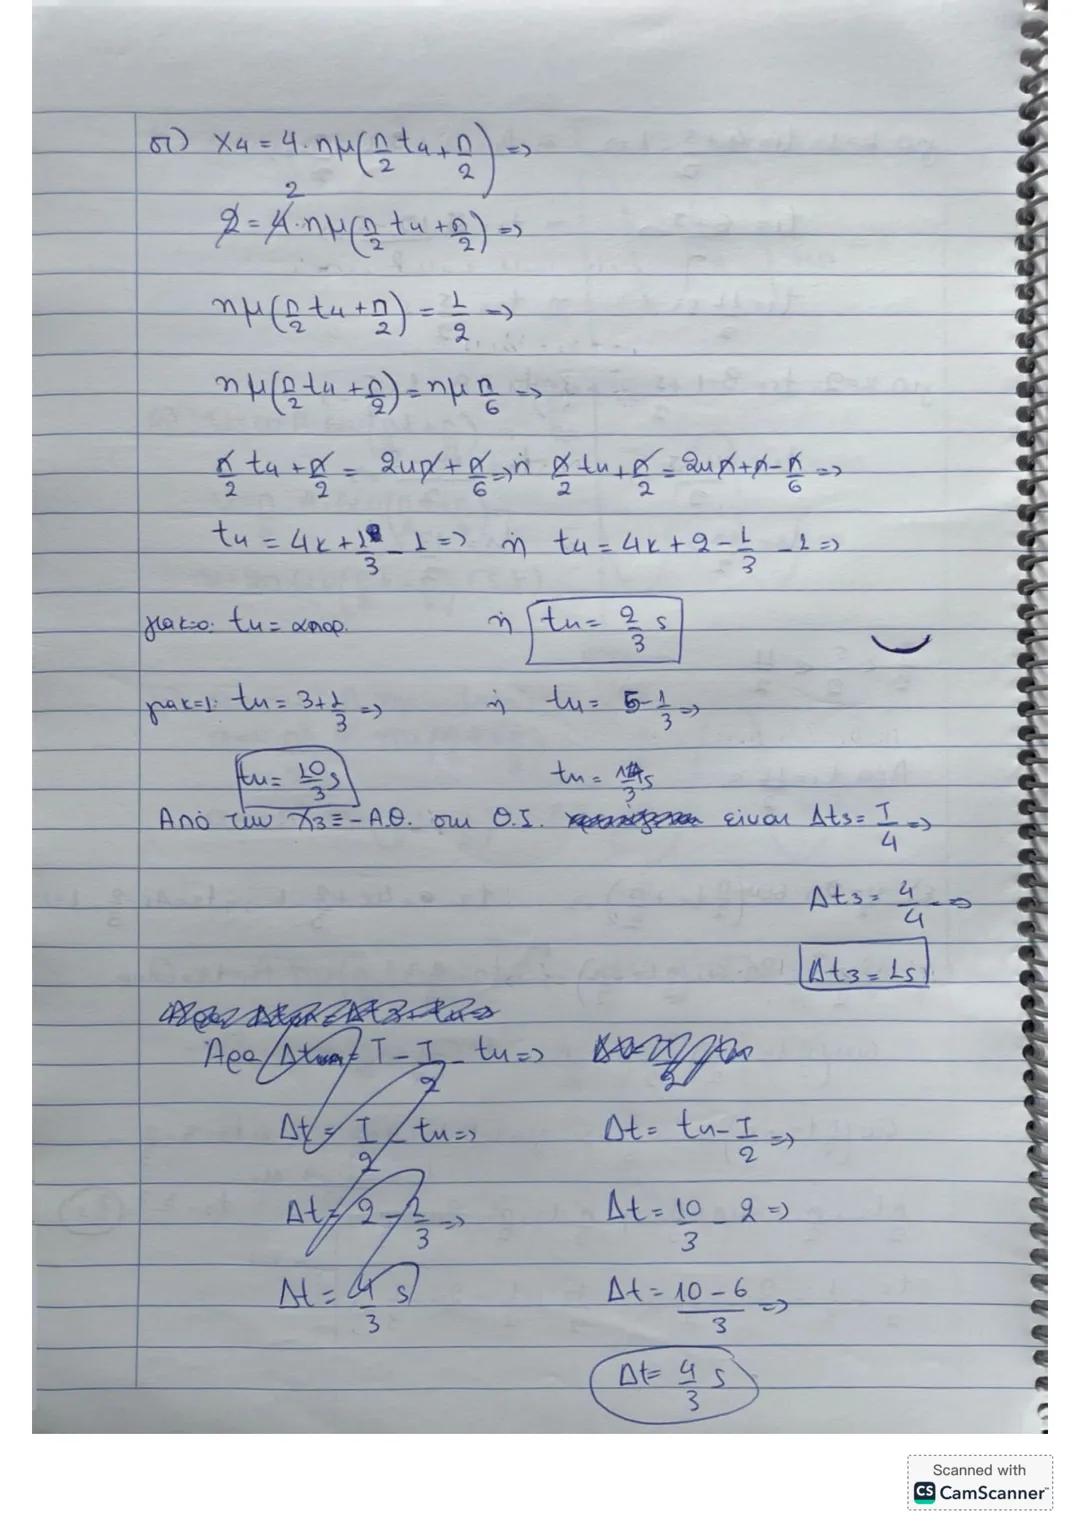 στ) x₄ = 4·ημ(π/2 t₄ + π/2) =>
2 = 4·ημ(π/2 t₄ + π/2) =>
2
ημ(π/2 t₄ + π/2) = 1/2 =>
ημ(π/2 t₄ + π/2) = ημ π/6 =>
π/2 t₄ + π/2 = 2κπ + π/6 => ή π/2 t₄ + π/2 = 2κπ + π - π/6 =>
t₄ = 4κ + 1/3 - 1 => ή t₄ = 4κ + 2 - 1/3 - 1 =>
για κ=0: t₄ = απορ. ή t₄ = 2/3 s
για κ=1: t₄ = 3 + 1/3 => ή t₄ = 5 - 1/3 =>
t₄ = 10/3 s t₄ = 14/3 s
Από την x₃ ≡ -Α.Θ. στη Θ.Ι. είναι Δt₃ = T/4 =>
Δt₃ = 4/4 =>
Δt₃ = 1s
Άρα T - T/2 - t₄ =>
Δt = T/2 - t₄ => Δt = t₄ - T/2 =>
Δt = 2 - 2/3 => Δt = 10/3 - 2 =>
Δt = 4/3 s Δt = 10 - 6/3 =>
Δt = 4/3 s
Scanned with
CS CamScanner™